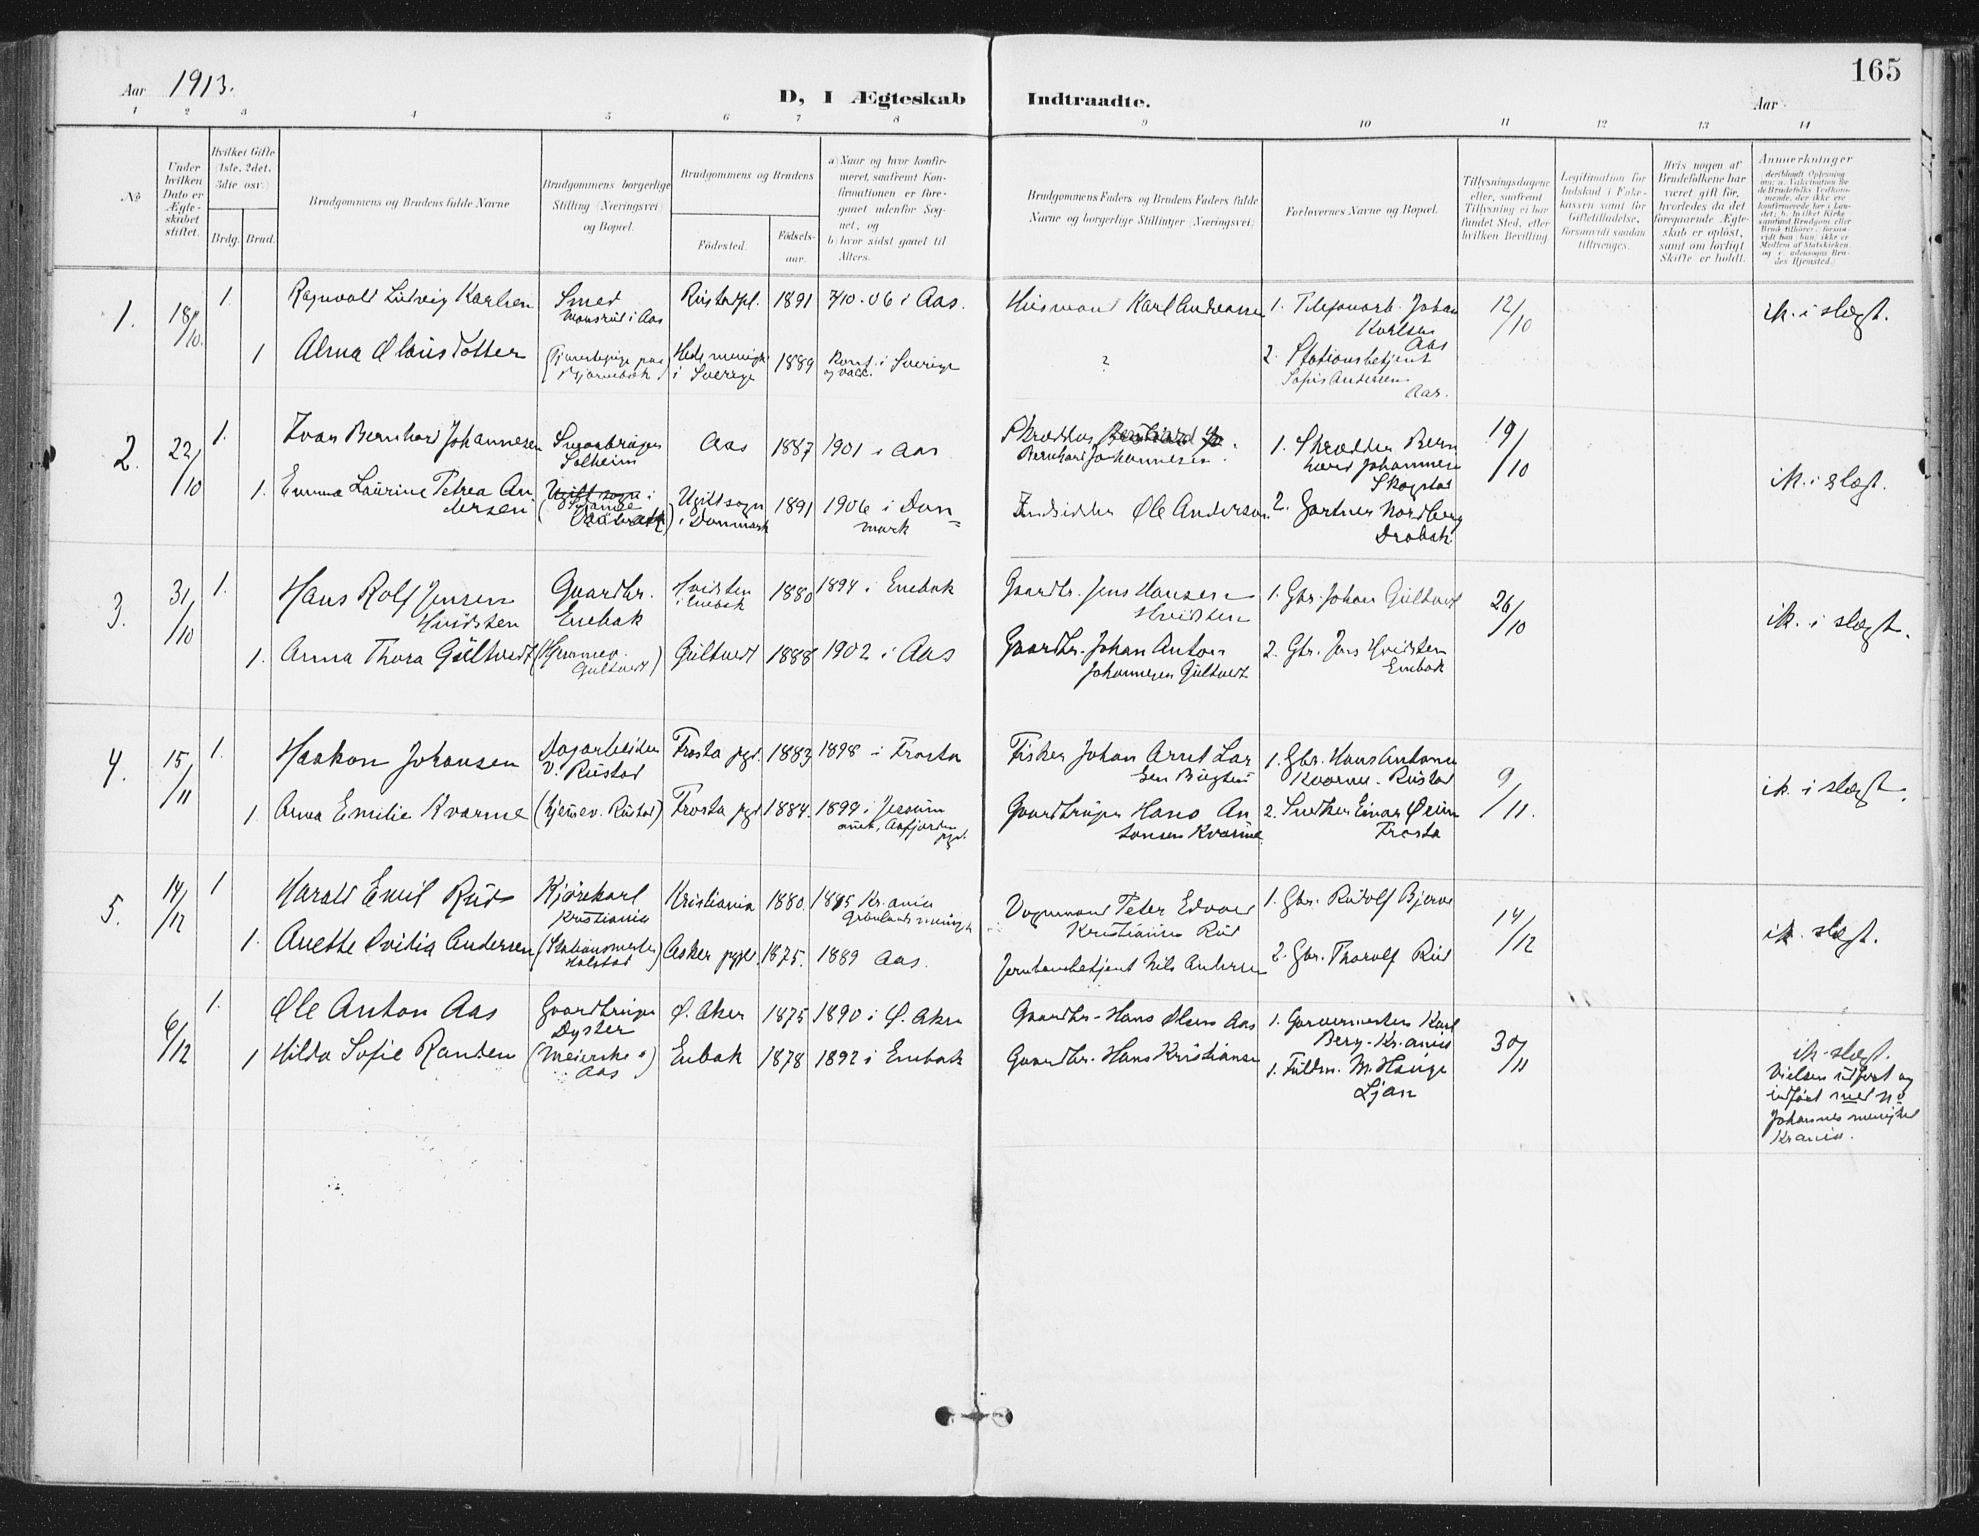 165
Aar 1913.
D, I Ægteskab Indtraadte.
Aar
1 2 3 4 5 6 7 8 9 10 11 12 13 14
No
Under hvilken Dato er Ægteskabet stiftet.
Hvilket Gifte (1ste, 2det, 3die osv.)
Brdg. Brud.
Brudgommens og Brudens fulde Navne
Brudgommens borgerlige Stilling (Næringsvei) og Bopæl.
Brudgommens og Brudens
Fødested.
Fødselsaar.
a) Naar og hvor konfirmeret, saafremt Konfirmationen er foregaaet udenfor Sognet, og
b) hvor sidst gaaet til Alters.
Brudgommens Faders og Brudens Faders fulde Navne og borgerlige Stillinger (Næringsvei)
Forlovernes Navne og Bopæl.
Tillysningsdagene eller, saafremt Tillysning ei har fundet Sted, efter hvilken Bevilling
Legitimation for Indskud i Enkekassen samt for Giftetilladelse, forsaavidt saadan tiltrænges.
Hvis nogen af Brudefolkene har været gift før, hvorledes da det foregaaende Ægteskab er opløst, samt om lovligt Skifte er holdt.
Anmerkninger
1. 18/10. 1. Ragnvald Ludvig Karlsen Smed i Aas Rustadpl. 1891 7/10-06 i Aas. Husmand Karl Andreassen 1. Telefonarb. Johan Karlsen Aas 12/10 ik. i slægt.
1 Alma Olausdotter 1889 Konf. i Sverige og vacc. ? 2. Stationsbetjent Andersen Aas.
2. 22/10 1. Ivar Bernhard Johannesen Smaabruger Solheim Aas 1887 1901 i Aas Skrædder Bernhard Johannesen. 1. Skrædder Bernhard Johannesen Skogstad 19/10 ik. i slægt.
1. Emma Laurine Petrea Andersen i Danmark 1891 1906 i Danmark Indsidder Ole Andersen. 2. Gartner Nordberg Drøbak.
3. 31/10 1. Hans Rolf Jensen Hvidsten Gaardbr. Enebak Hvidsten i Enebak 1880 1894 i Enebak Gaardbr. Jens Hansen Hvidsten 1. Gbr. Johan Gultvedt 26/10 ik. i slægt.
1. Anna Thora Gultvedt (Hjemmev. Gultvedt) Gultvedt 1888 1902 i Aas Gaardbr. Johan Anton Johannesen Gultvedt 2. Gbr. Jens Hvidsten Enebak
4. 15/11 1. Haakon Johansen Dagarbeider v. Rustad Frosta pgd. 1883 1898 i Frosta Fisker Johan Arnt Larsen 1. Gbr. Hans Antonsen Kvarme - Rustad 9/11. ik. i slægt.
1. Anna Emilie Kvarme (hjemmev. Rustad) Frosta pgd 1884. 1899 i Aafjorden pgd. Gaardbruger Hans Antonsen Kvarme. 2. Snedker Einar Øien Frosta
5. 14/12 1 Harald Emil Rud Kjørekarl Kristiania Kristiania 1880. 1895 Kr.ania Grønlands menigh Vognmand Peter Edvard Kristiansen Rud 1. Gbr. Rudolf Bjerve 14/12 ik. slægt.
1. Anette Ovilia Andersen (Stationsmester Holstad) Asker pgjld. 1875. 1889 Aas. Jernbanebetjent Nils Andersen 2. Gbr. Thorolf Rud
6/12 1. Ole Anton Aas Gaardbruger Dyster Ø. Aker 1875 1890 i Ø. Aker Gaardbr. Hans Olsen Aas 1. Garvermester Karl Berg - Kr.ania 30/11 ik. slægt.
1 Hilda Sofie Randem (Meierske Aas) Enbak 1878 1892 i Enebak Gaardbr. Hans Kristiansen 1. Fuldm. M. Hauge Ljan
Vielsen udført og indført med No Johannes menighed Krania.